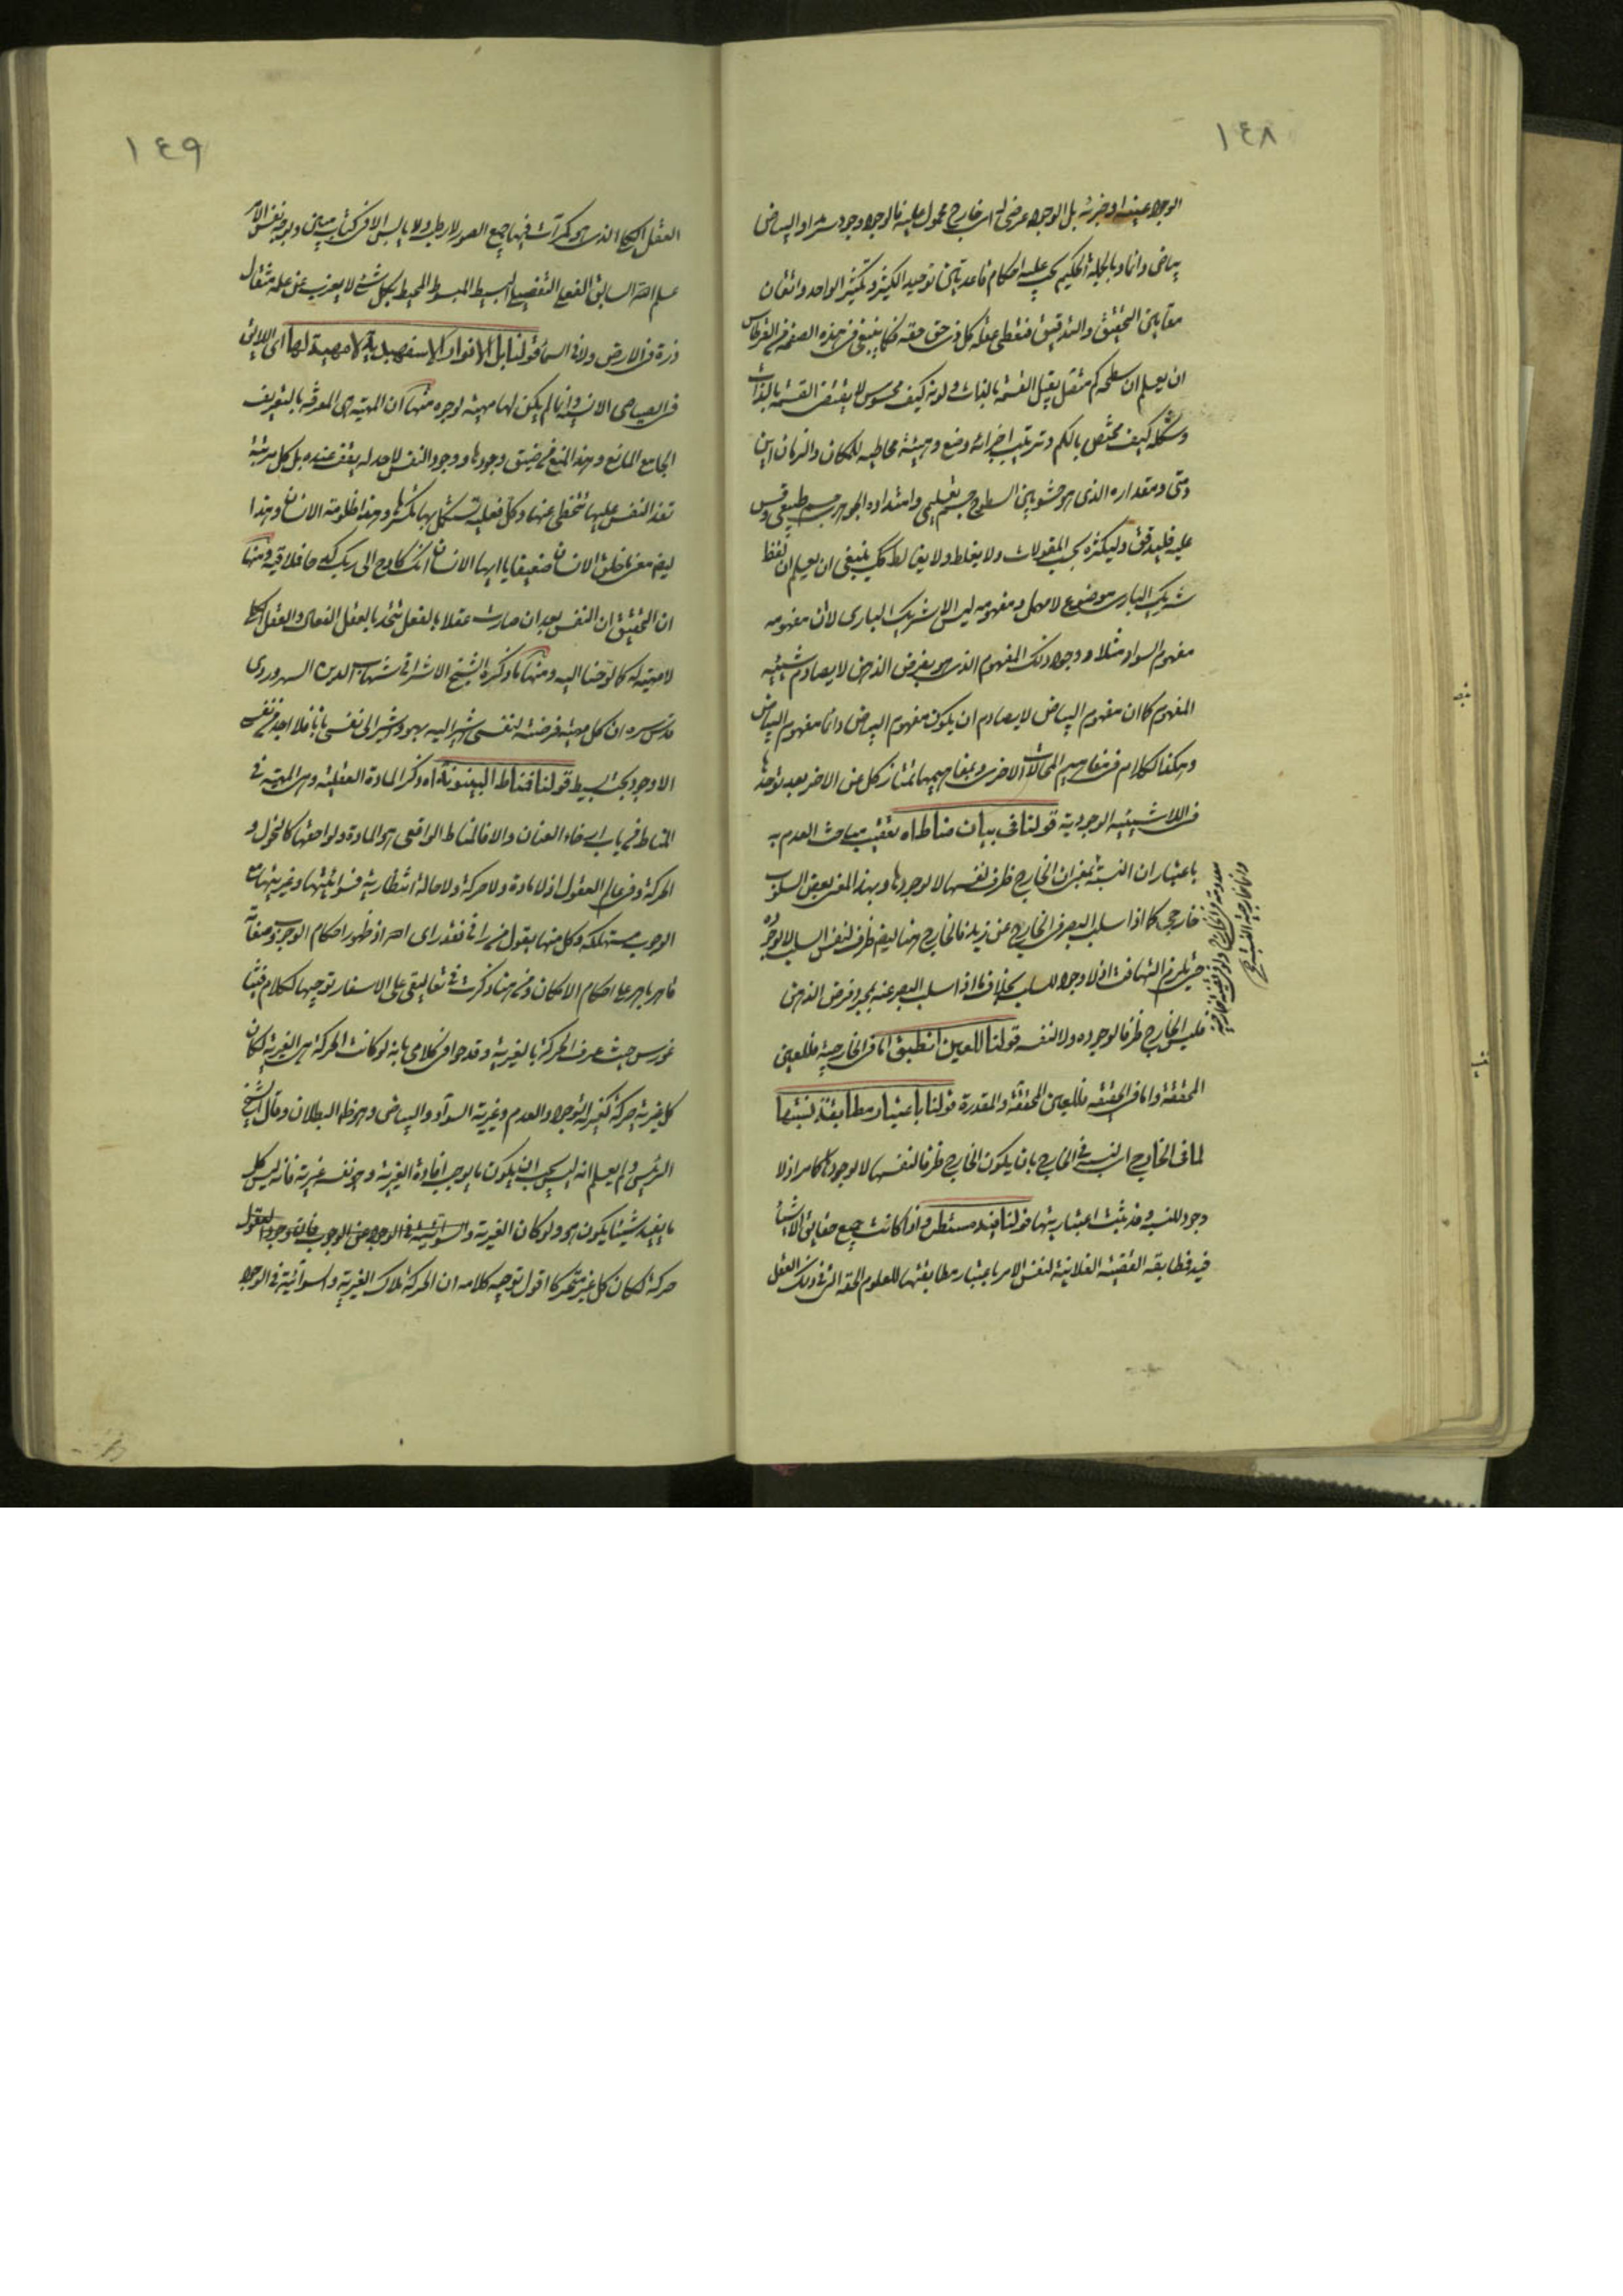 ١٤٨
الوجود عينه او جزئه بل الوجود عرضى له اى خارج محمول عليه فالوجود وجود سرمدا والبياض
بياض دائما وبالجملة الحكيم يجب عليه احكام قاعدتين توحيد الكثير وتكثير الواحد واتقان
مقامين التحقيق والتدقيق فيعطى عقله كل ذى حق حقه فكما ينبغى فى هذه الصفحة من القرطاس
ان يعلم ان سطحه كم متصل يقبل القسمة بالذات ولونه كيف محسوس لا يقتضى القسمة بالذات
وشكله كيف مختص بالكم وترتيب اجزائه وضع وهيئة محاطيه للمكان والزمان اين
ومتى ومقداره الذى هو حشو بين السطوح جسم تعليمى وامتداده الجوهرى جسم طبيعى وقس
عليه فليدقق وليكثره بحسب المقولات ولا يغلط ولا يغالط كك ينبغى ان يعلم ان لفظ
شريك البارى موضوع لا مهمل ومفهومه ليس الا شريك البارى لا ان مفهومه
مفهوم السواد مثلا ووجود ذلك المفهوم الذى هو بفرض الذهن لا يصادم شيئية
المفهوم كما ان مفهوم البياض لا يصادم ان يكون مفهوم البياض دائما مفهوم البياض
وهكذا الكلام فى مفاهيم المحالات الاخرى وبمفاهيمها تمتاز كل عن الاخر بعد توحدها
فى اللاشيئية الوجودية قولنا فى بيان مناطاه تعقيب مباحث العدم به
باعتبار ان النسبة تمغيران الخارج ظرف نفسها لا وجودها وبهذا المعنى بعض السلوب
خارجى كما اذا سلب البصر فى الخارج عن زيد فالخارج هنا ايضا ظرف لنفس السلب لا لوجوده
حتى يلزم التهافت اذ لا وجود للسلب بخلاف ما اذا سلب البصر عنه بمجرد فرض الذهن
فليس الخارج ظرفا لوجوده ولا لنفسه قولنا للعين انطبق اما فى الخارجية فللعين
المحققة واما فى الحقيقية فللعين المحققة والمقدرة قولنا باعتبار مطابقة نسبتها
لما فى الخارج اى النسبة فى الخارج بان يكون الخارج ظرفا لنفسها لا لوجودها كما مر اذ لا
وجود للنسبة وقد يثبت اعتباريتها قولنا فيه مستطر واذا كانت جميع حقايق الاشياء
فيه فمطابقة القضية الفلانية لنفس الامر باعتبار مطابقتها للعلوم الحقة التى فى ذلك العقل
١٤٩
العقل الكلى الذى هو كمرآت فيها جميع الصور لا رطب ولا يابس الا فى كتاب مبين وبوجه نفس الامر
علم الله السابق الفعلى التفصيلى البسيط المبسوط المحيط بكل شئ لا يعزب عن علمه مثقال
ذرة فى الارض ولا فى السماء قولنا بل الانوار الاسفهبدية لا مهية لها اى اللائى
فى الصياصى الانسية وانما لم يكن لها مهية لوجوه منها ان المهية هى المعرفة بالتعريف
الجامع المانع وهذا المنع من ضيق وجودها ووجود النفس لا حد له يقف عنده بل كل مرتبة
تفذ النفس عليها تتخطى عنها وكل فعلية تستكمل بها تكسرها وهذا ظلومية الانسان وهذا
ايضا معنى خلق الانسان ضعيفا يا ايها الانسان انك كادح الى ربك كدحا فملاقيه ومنها
ان التحقيق ان النفس بعد ان صارت عقلا بالفعل تتحد بالعقل الفعال والعقل الكلى
لا مهية له كما لوحنا اليه ومنها ما ذكره الشيخ الاشراقى شهاب الدين السهروردى
قدس سره ان كل مهية فرضته لنفسى اشير اليه بهو واشير الى نفسى بانا فلا اجد فى نفسى
الا وجود بحت بسيط قولنا فمناط البينونة اه وذكر المادة العقلية وهى المهية فى
المناط من باب ارخاء العنان والا فالمناط الواقعى هو المادة ولواحقها كالتحول و
الحركة وفى عالم العقول اذ لا مادة ولا حركة ولا حالة انتظارية فسوائيتها وغيريتها
الوجوب مستهلكة وكل منها يقول من رانى فقد راى الله اذ ظهور احكام الوجوب وصفاته
قاهر باهر على احكام الامكان ومن هنا ذكرت فى تعاليقى على الاسفار توجيها لكلام فيثا
غورس حيث عرف الحركة بالغيرية وقد حوا فى كلامى بانه لو كانت الحركة هى الغيرية لكان
كل غيرية حركة كغيرية الوجود والعدم وغيرية السواد والبياض وهو ظاهر البطلان وقال الشيخ
الرئيس ولم يعلم انه ليس يجب ان يكون ما يوجب افادة الغيرية وهو نفسه غيرية فانه ليس كل
ما يفيد شيئا يكون هو ولو كان الغيرية والسوائية فى الوجود عن الوجوب
حركة لكان كل غير متحركا اقول توجيه كلامه ان الحركة ملاك الغيرية والسوائية فى الوجود